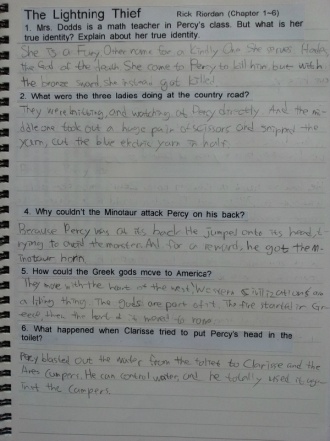 The Lightning Thief Rick Riordan (Chapter 1~6)
1. Mrs. Dodds is a math teacher in Percy's class. But what is her
true identity? Explain about her true identity.
She Is a Fury Other name for a kindly One She serves Hades,
the God of the death She come to Percy to kill him but with
the bronze sword, she instead got killed
2. What were the three ladies doing at the country road?
They were knitting, and watching at Percy directly And the mi-
ddle one took out a huge pair of scissors and snipped the
yarn, cut the blue electric yarn in half.
4. Why couldn't the Minotaur attack Percy on his back?
Because Percy was at its back He jumped onto its head, t-
rying to avoid the monster. And for a reward, he got the M-
inotaur horn
5. How could the Greek gods move to America?
They move with the heart of the west. Western civilizations are
a living thing. The gods are part of it. The fire started in Gr-
eece then the
it moved to rome
6. What happened when Clarisse tried to put Percy's head in the
toilet?
Percy blasted out the water from the toilet to Clarisse and the
Ares Campers. He can control water, and he totally used is aga-
inst the campers